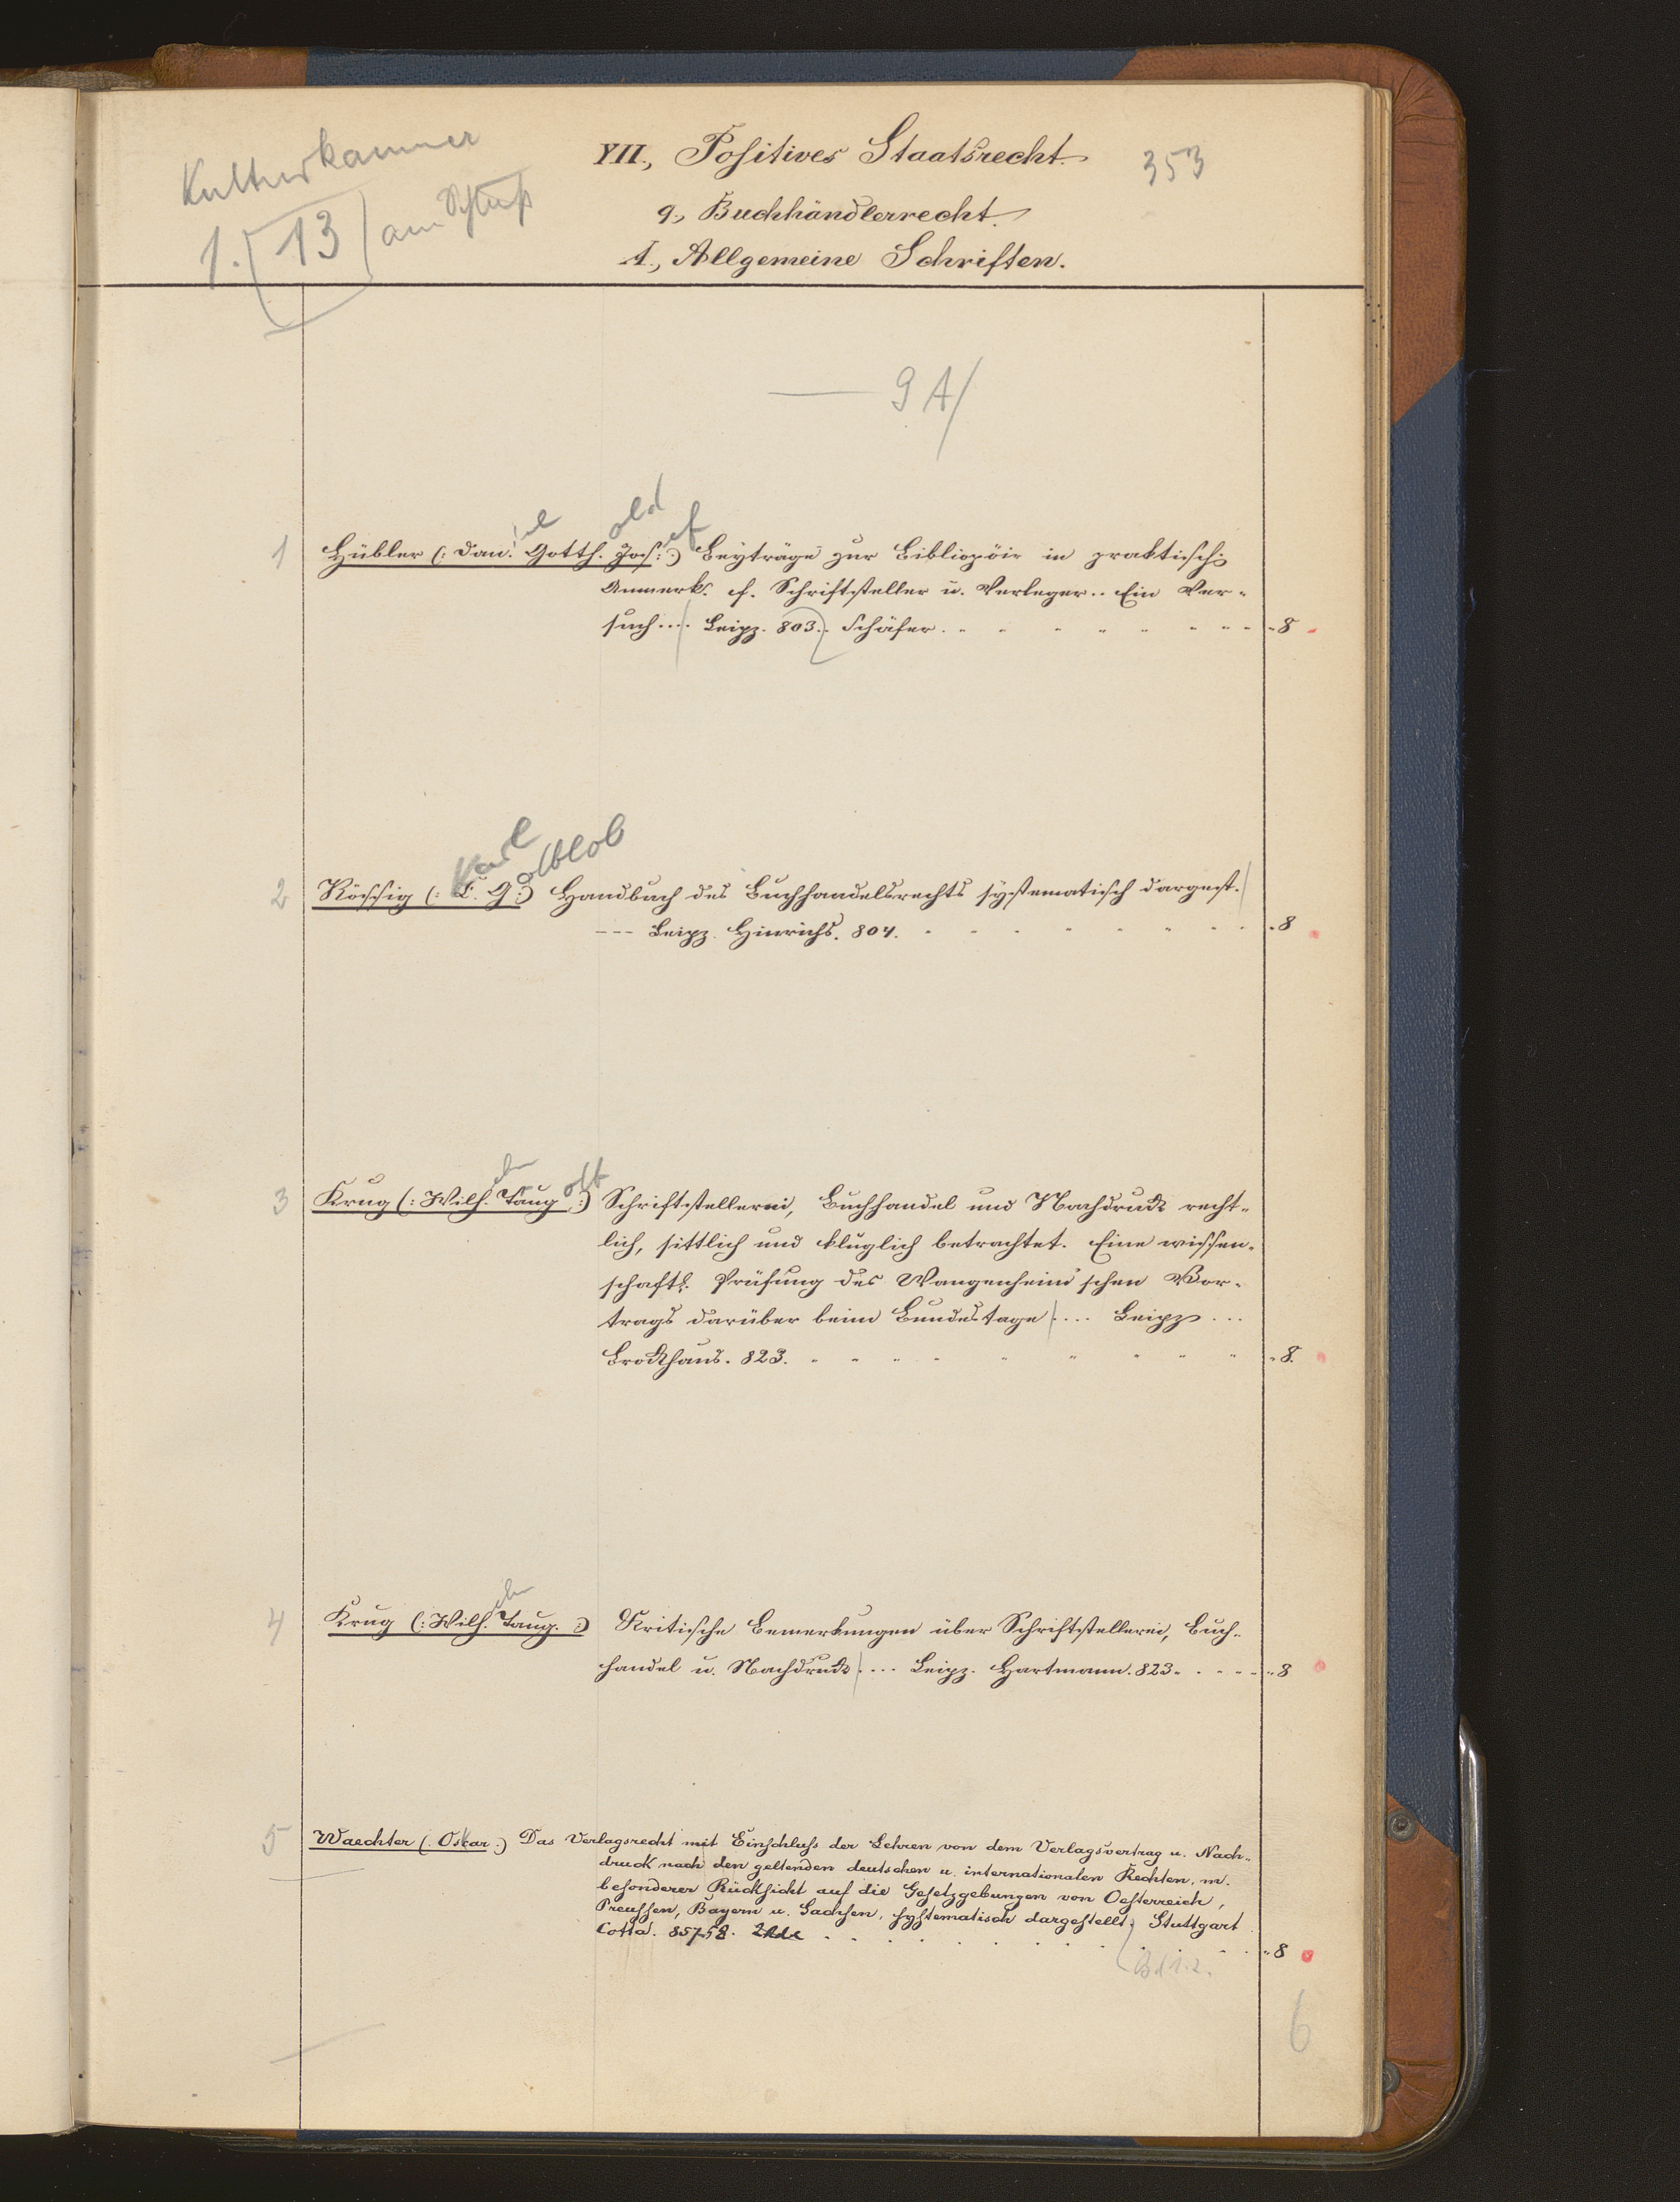 Kulturkammer
1. (13) am Schluß
VII., Positives Staatsrecht.
353
9., Buchhändlerrecht.
A., Allgemeine Schriften.
9 A/
1 Hübler (: Dan.iel Gotth.old Jos:ef :) Beyträge zur Bibliopöie in praktisch:
Anmerk. f. Schriftsteller u. Verleger.. Ein Ver-
such.... Leipz. 803.. Schäfer. 8
2 Rössig (: C. G. :) Handbuch des Buchhandelsrechts systematisch dargest.
Karl Gottlob
--- Leipz. Hinrichs. 804. 8
3 Krug (: Wilh.elm Traug.ott :) Schriftstellerei, Buchhandel und Nachdruck recht-
lich, sittlich und klüglich betrachtet. Eine wissen-
schaftl. Prüfung des Wangenheim'schen Vor-
trags darüber beim Bundestage .... Leipz ...
Brockhaus. 823. 8.
4 Krug (: Wilh.elm Traug. :) Kritische Bemerkungen über Schriftstellerei, Buch-
handel u. Nachdruck .... Leipz. Hartmann. 823. 8
5 Waechter (: Oskar :) Das Verlagsrecht mit Einschluss der Lehren von dem Verlagsvertrag u. Nach-
druck nach den geltenden deutschen u. internationalen Rechten, m.
besonderer Rücksicht auf die Gesetzgebungen von Oesterreich,
Preussen, Bayern u. Sachsen, systematisch dargestellt. Stuttgart
Cotta. 857-58. 2 Bde 8
Bd 1.2.
6